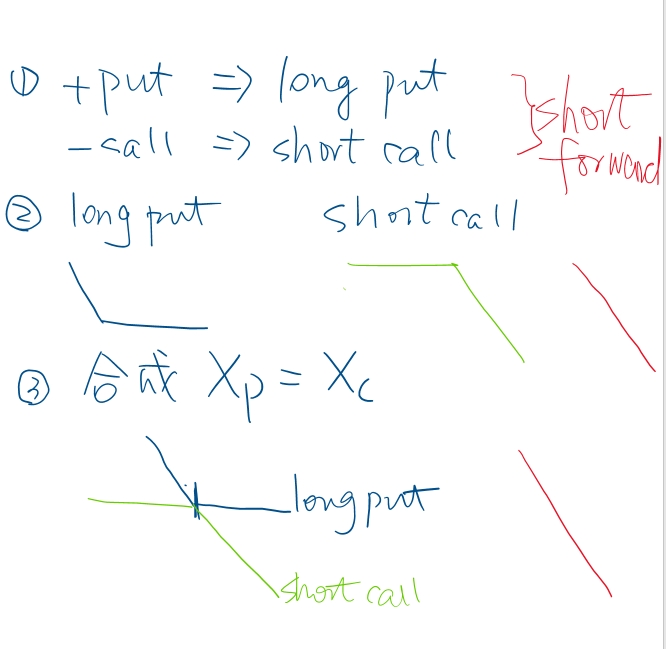 ① +put => long put
-call => short call
short
forward
② long put short call
③ 合成 Xp = Xc
long put
short call